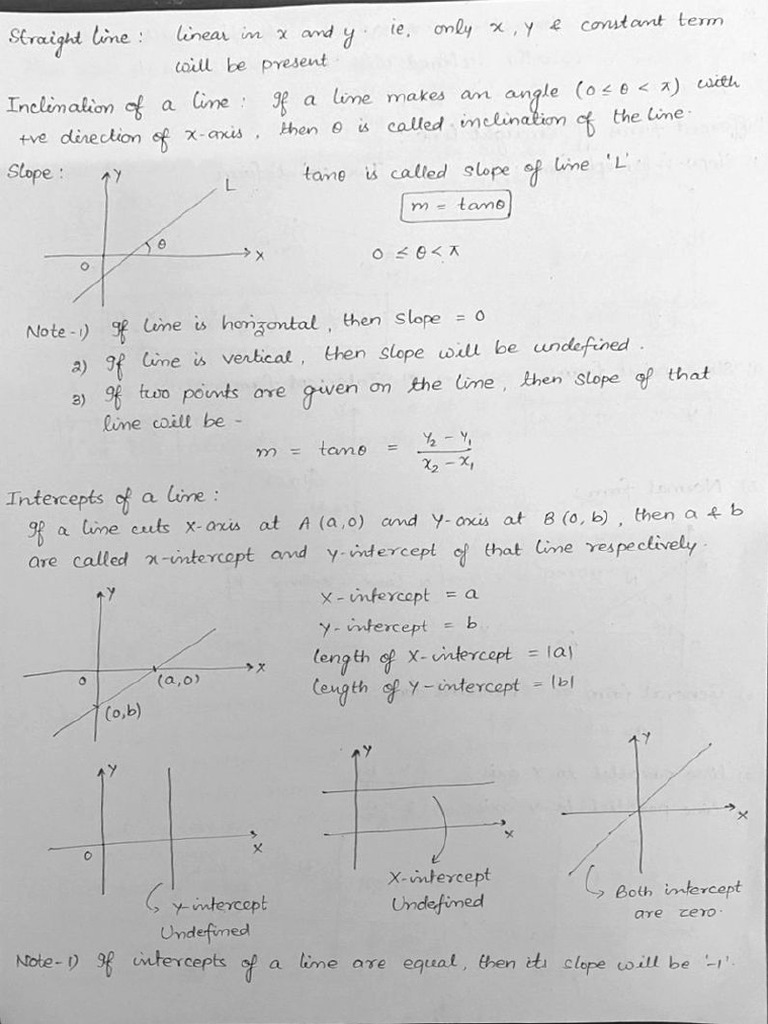 Straight line : linear in x and y. ie. only x, y & constant term
will be present
Inclination of a line : If a line makes an angle (0 ≤ θ < π) with
+ve direction of x-axis, then θ is called inclination of the line.
Slope :
Y
L
θ
X
0
tanθ is called slope of line 'L'
m = tanθ
0 ≤ θ < π
Note-1) If line is horizontal, then slope = 0
2) If line is vertical, then slope will be undefined.
3) If two points are given on the line, then slope of that
line will be -
m = tanθ = (y₂ - y₁)/(x₂ - x₁)
Intercepts of a line :
If a line cuts X-axis at A (a,0) and Y-axis at B (0, b), then a & b
are called x-intercept and y-intercept of that line respectively.
Y
X
0
(a,0)
(0,b)
X-intercept = a
Y-intercept = b
length of X-intercept = |a|
length of Y-intercept = |b|
Y
X
0
Y-intercept
Undefined
Y
X
X-intercept
Undefined
Y
X
Both intercept
are zero.
Note-1) If intercepts of a line are equal, then its slope will be '-1'.